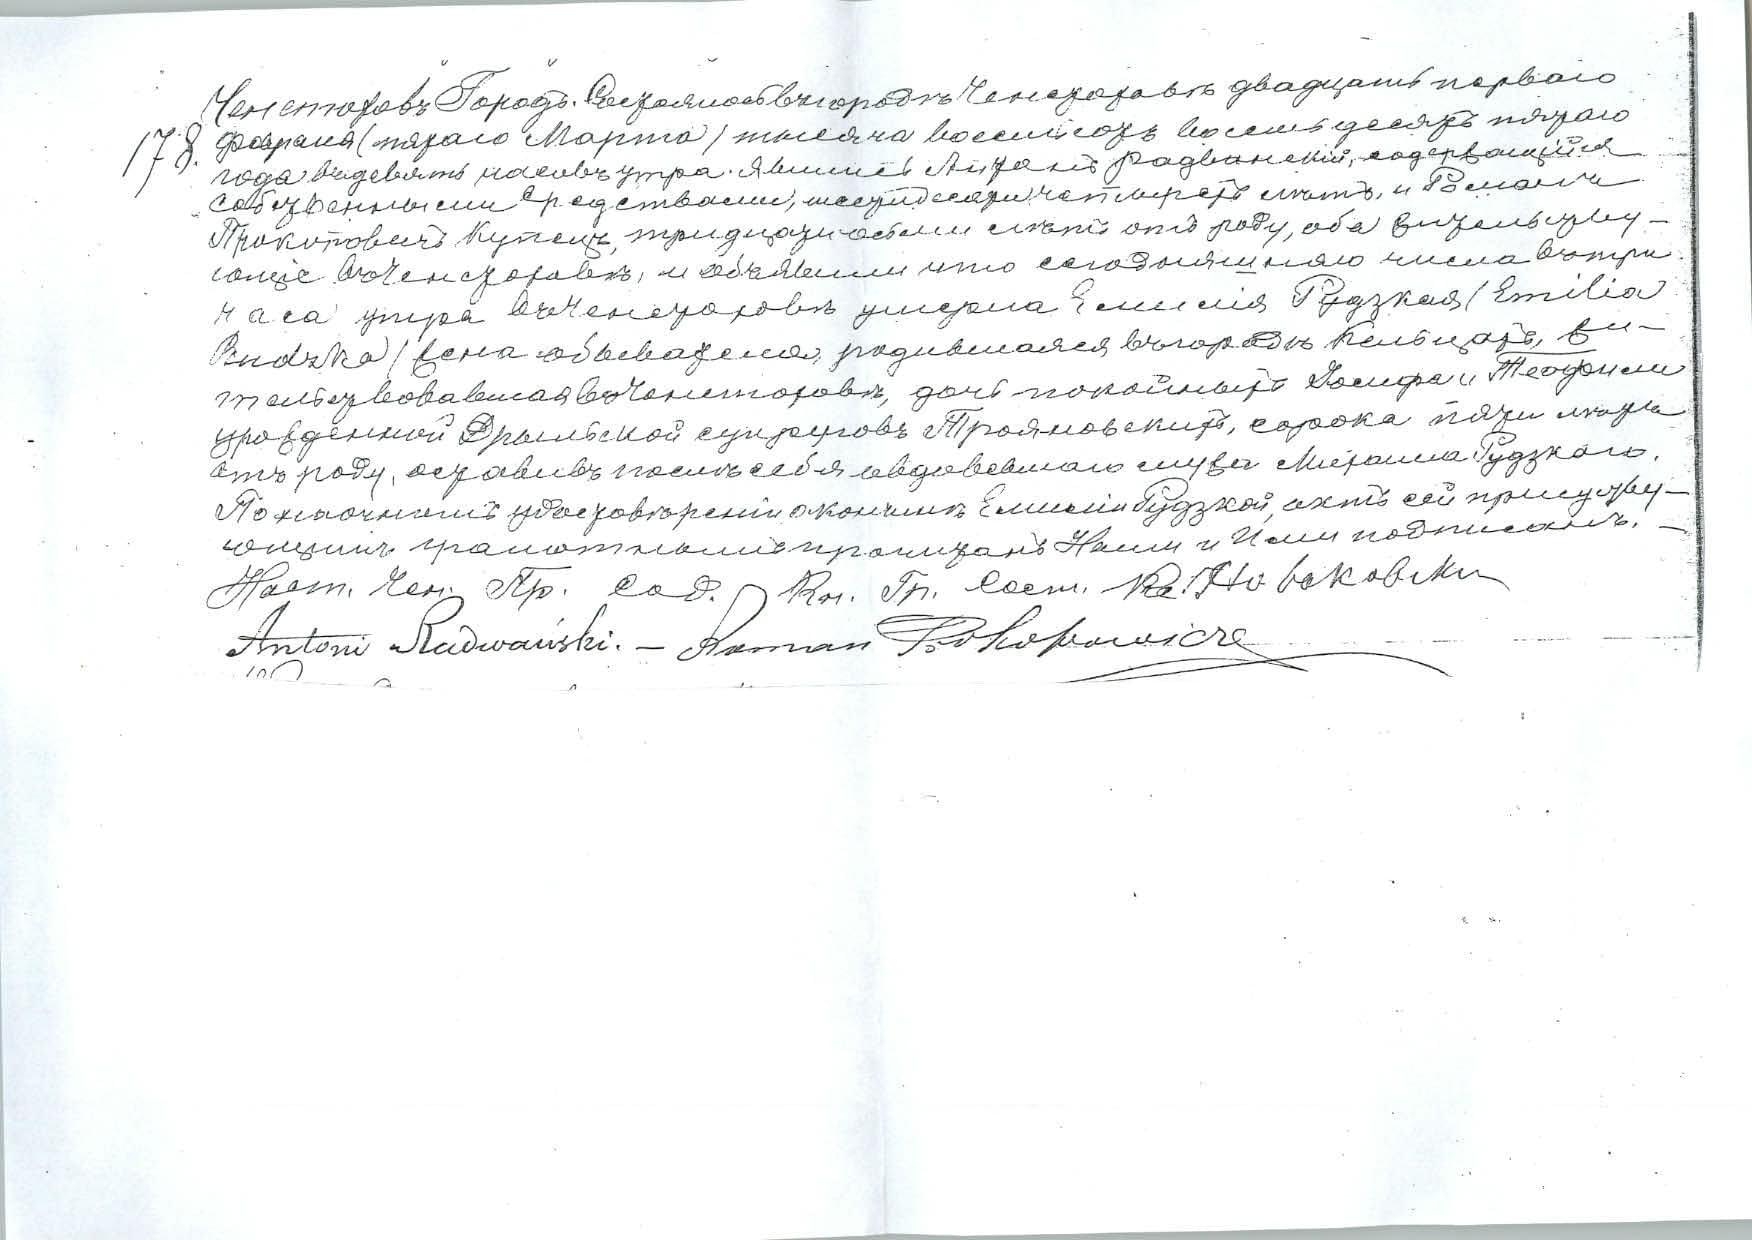 Ченстоховъ Городъ. Состоялось въ городѣ Ченстоховѣ двадцать перваго
178. Февраля (пятаго Марта) тысяча восемьсотъ восемьдесятъ пятаго
года въ девять часовъ утра. Явились Антонъ Радванскій, содержащійся
собственными средствами, шестидесяти четырехъ лѣтъ, и Романъ
Прокоповичъ Купецъ, тридцати осьми лѣтъ отъ роду, оба жительству-
ющіе въ Ченстоховѣ, и объявили что сегодняшняго числа въ три
часа утра въ Ченстоховѣ умерла Емилія Рудзкая (Emilia
Rudzka) жена обывателя, родившаяся въ городѣ Кельцахъ, жи-
тельствовавшая въ Ченстоховѣ, дочь покойныхъ Іосифа и Теофили
урожденной супруговъ Трояновскихъ, сорока пяти лѣтъ
отъ роду, оставивъ послѣ себя овдовевшаго мужа Михаила Рудзкаго.
По наочномъ удостовѣреніи о кончинѣ Емиліи Рудзкой, актъ сей присутству-
ющимъ грамотнымъ прочитанъ Нами и Ими подписанъ. —
Наст. Чен. Пр. Сод. Кн. Гр. Сост.
Antoni Radwański. — Roman Prokopowicz